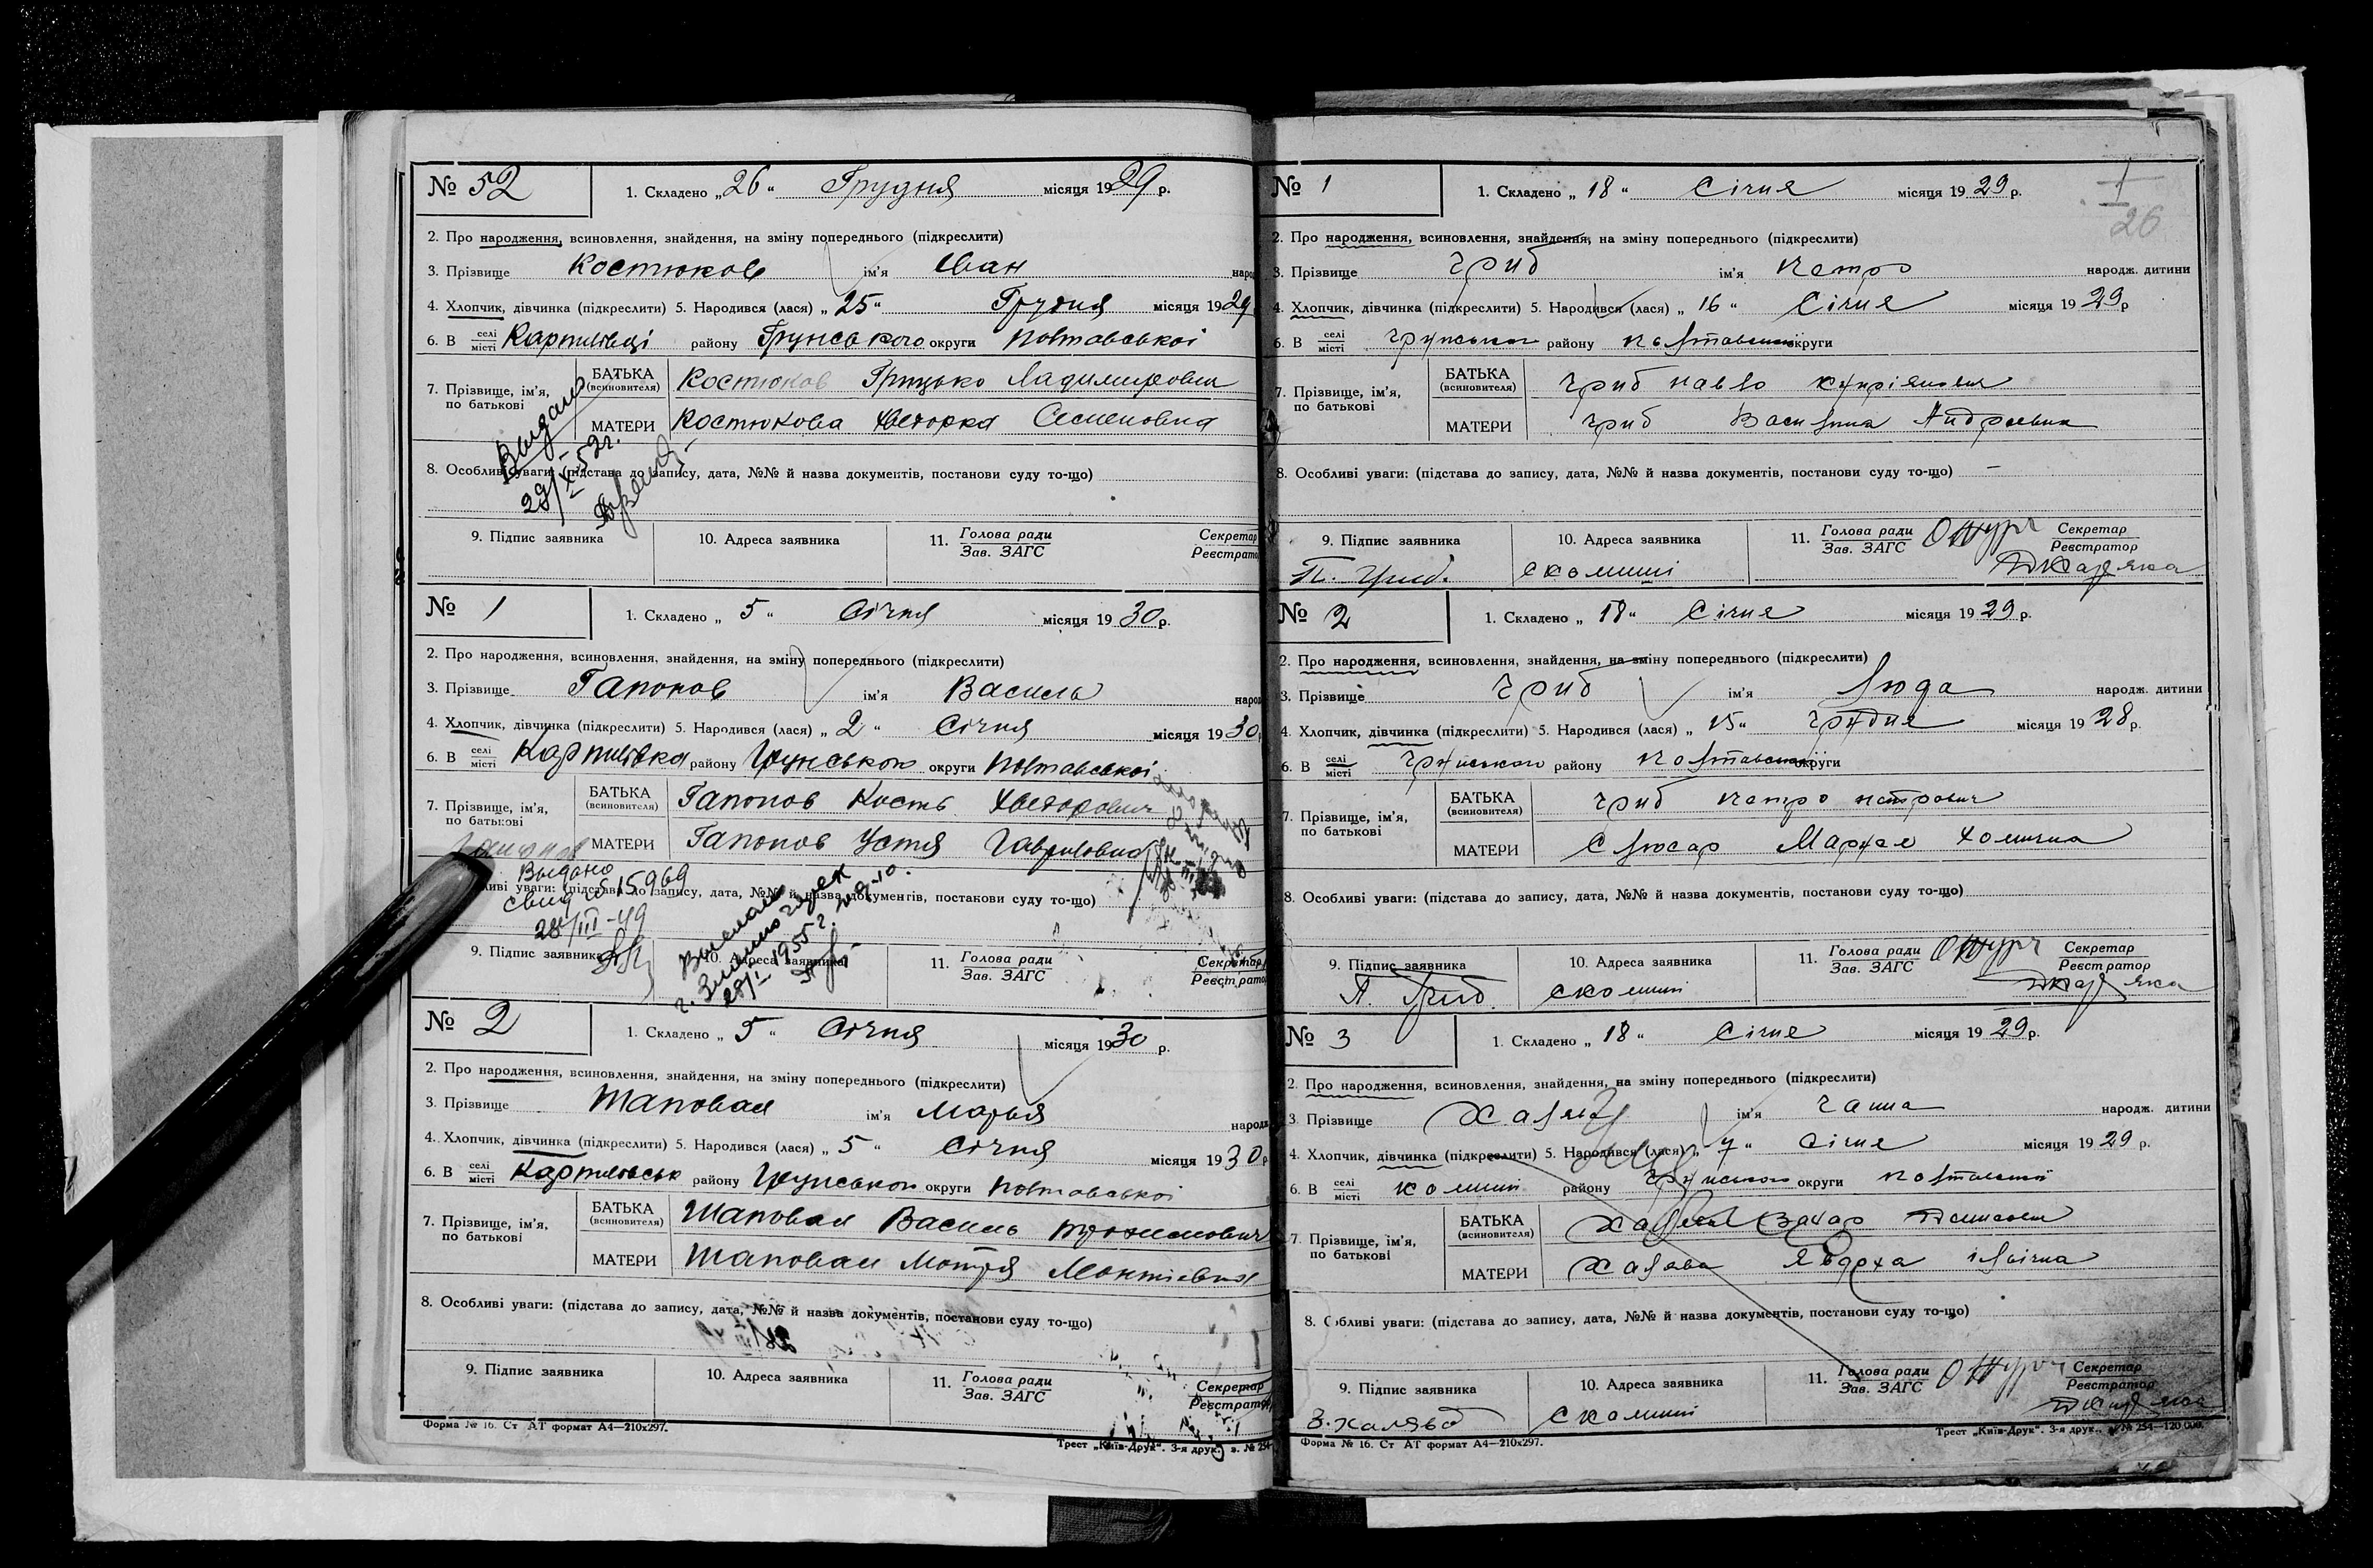 № 52
1. Складено „26“ Грудня місяця 1929 р.
2. Про народження, всиновлення, знайдення, на зміну попереднього (підкреслити)
3. Прізвище Костюков ім'я Іван народ
4. Хлопчик, дівчинка (підкреслити) 5. Народився (лася) „25“ Грудня місяця 1929
6. В селі місті Карпилівці району Грунського округи Полтавської
7. Прізвище, ім'я, по батькові
БАТЬКА (всиновителя) Костюков Грицько Ладимирович
МАТЕРИ Костюкова Хведорка Семеновна
Выдано
8. Особливі уваги: (підстава до запису, дата, №№ й назва документів, постанови суду то-що)
9. Підпис заявника
10. Адреса заявника
11. Голова ради Зав. ЗАГС
Секретар Реєстратор
№ 1
1. Складено „5“ Січня місяця 1930 р.
2. Про народження, всиновлення, знайдення, на зміну попереднього (підкреслити)
3. Прізвище Гапонов ім'я Василь народ
4. Хлопчик, дівчинка (підкреслити) 5. Народився (лася) „2“ Січня місяця 1930
6. В селі місті Карпилівка району Грунського округи Полтавської
7. Прізвище, ім'я, по батькові
БАТЬКА (всиновителя) Гапонов Кость Хведорович
МАТЕРИ Гапонов Устя Гавриловна
Выдано
свид 15969
28/III-49
уваги: (підстава до запису, дата, №№ й назва документів, постанови суду то-що)
28/I 1955 г.
9. Підпис заявника
10. Адреса заявника
11. Голова ради Зав. ЗАГС
Секретар Реєстратор
№ 2
1. Складено „5“ Січня місяця 1930 р.
2. Про народження, всиновлення, знайдення, на зміну попереднього (підкреслити)
3. Прізвище Шаповал ім'я Марья народ
4. Хлопчик, дівчинка (підкреслити) 5. Народився (лася) „5“ Січня місяця 1930 р
6. В селі місті району Грунського округи Полтавської
7. Прізвище, ім'я, по батькові
БАТЬКА (всиновителя) Шаповал Василь
МАТЕРИ Шаповал Мотря
8. Особливі уваги: (підстава до запису, дата, №№ й назва документів, постанови суду то-що)
9. Підпис заявника
10. Адреса заявника
11. Голова ради Зав. ЗАГС
Секретар Реєстратор
Форма № 16. Ст АТ формат А4—210х297.
Трест „Київ-Друк“. 3-я друк., з. № 254
1
26
№ 1
1. Складено „18“ Січня місяця 1929 р.
2. Про народження, всиновлення, знайдення, на зміну попереднього (підкреслити)
3. Прізвище Гриб ім'я Петро народж. дитини
4. Хлопчик, дівчинка (підкреслити) 5. Народився (лася) „16“ Січня місяця 1929 р
6. В селі місті Грунського району Полтавської округи
7. Прізвище, ім'я, по батькові
БАТЬКА (всиновителя) Гриб Павло
МАТЕРИ Гриб Василина Андреевна
8. Особливі уваги: (підстава до запису, дата, №№ й назва документів, постанови суду то-що) —
9. Підпис заявника П. Гриб.
10. Адреса заявника
11. Голова ради Зав. ЗАГС
Секретар Реєстратор
№ 2
1. Складено „18“ Січня місяця 1929 р.
2. Про народження, всиновлення, знайдення, на зміну попереднього (підкреслити)
3. Прізвище Гриб ім'я Люда народж. дитини
4. Хлопчик, дівчинка (підкреслити) 5. Народився (лася) „15“ Грудня місяця 1928 р.
6. В селі місті Грунського району Полтавської округи
7. Прізвище, ім'я, по батькові
БАТЬКА (всиновителя) Гриб Петро Петрович
МАТЕРИ Слюсар Хомична
8. Особливі уваги: (підстава до запису, дата, №№ й назва документів, постанови суду то-що)
9. Підпис заявника П. Гриб.
10. Адреса заявника
11. Голова ради Зав. ЗАГС
Секретар Реєстратор
№ 3
1. Складено „18“ Січня місяця 1929 р.
2. Про народження, всиновлення, знайдення, на зміну попереднього (підкреслити)
3. Прізвище ім'я Ганна народж. дитини
4. Хлопчик, дівчинка (підкреслити) 5. Народився (лася) „7“ Січня місяця 1929 р.
6. В селі місті району Грунського округи Полтавської
7. Прізвище, ім'я, по батькові
БАТЬКА (всиновителя) Захар Денисович
МАТЕРИ Халява Явдоха Ільїчна
8. Особливі уваги: (підстава до запису, дата, №№ й назва документів, постанови суду то-що)
9. Підпис заявника З. Халява
10. Адреса заявника
11. Голова ради Зав. ЗАГС
Секретар Реєстратор
Форма № 16. Ст АТ формат А4—210х297.
Трест „Київ-Друк“. 3-я друк., з. № 254—120.000.